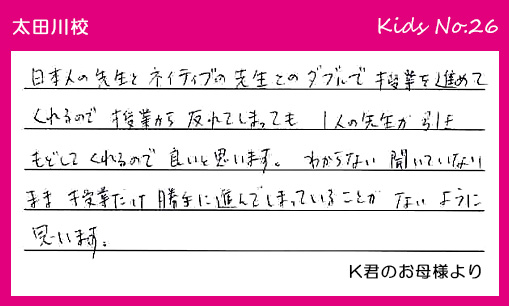 太田川校
Kids No.26
日本人の先生とネイティブの先生とのダブルで授業を進めて
くれるので 授業から反れてしまっても 1人の先生が引き
もどしてくれるので良いと思います。わからない 聞いていない
まま 授業だけ勝手に進んでしまっていることが ないように
思います。
K君のお母様より